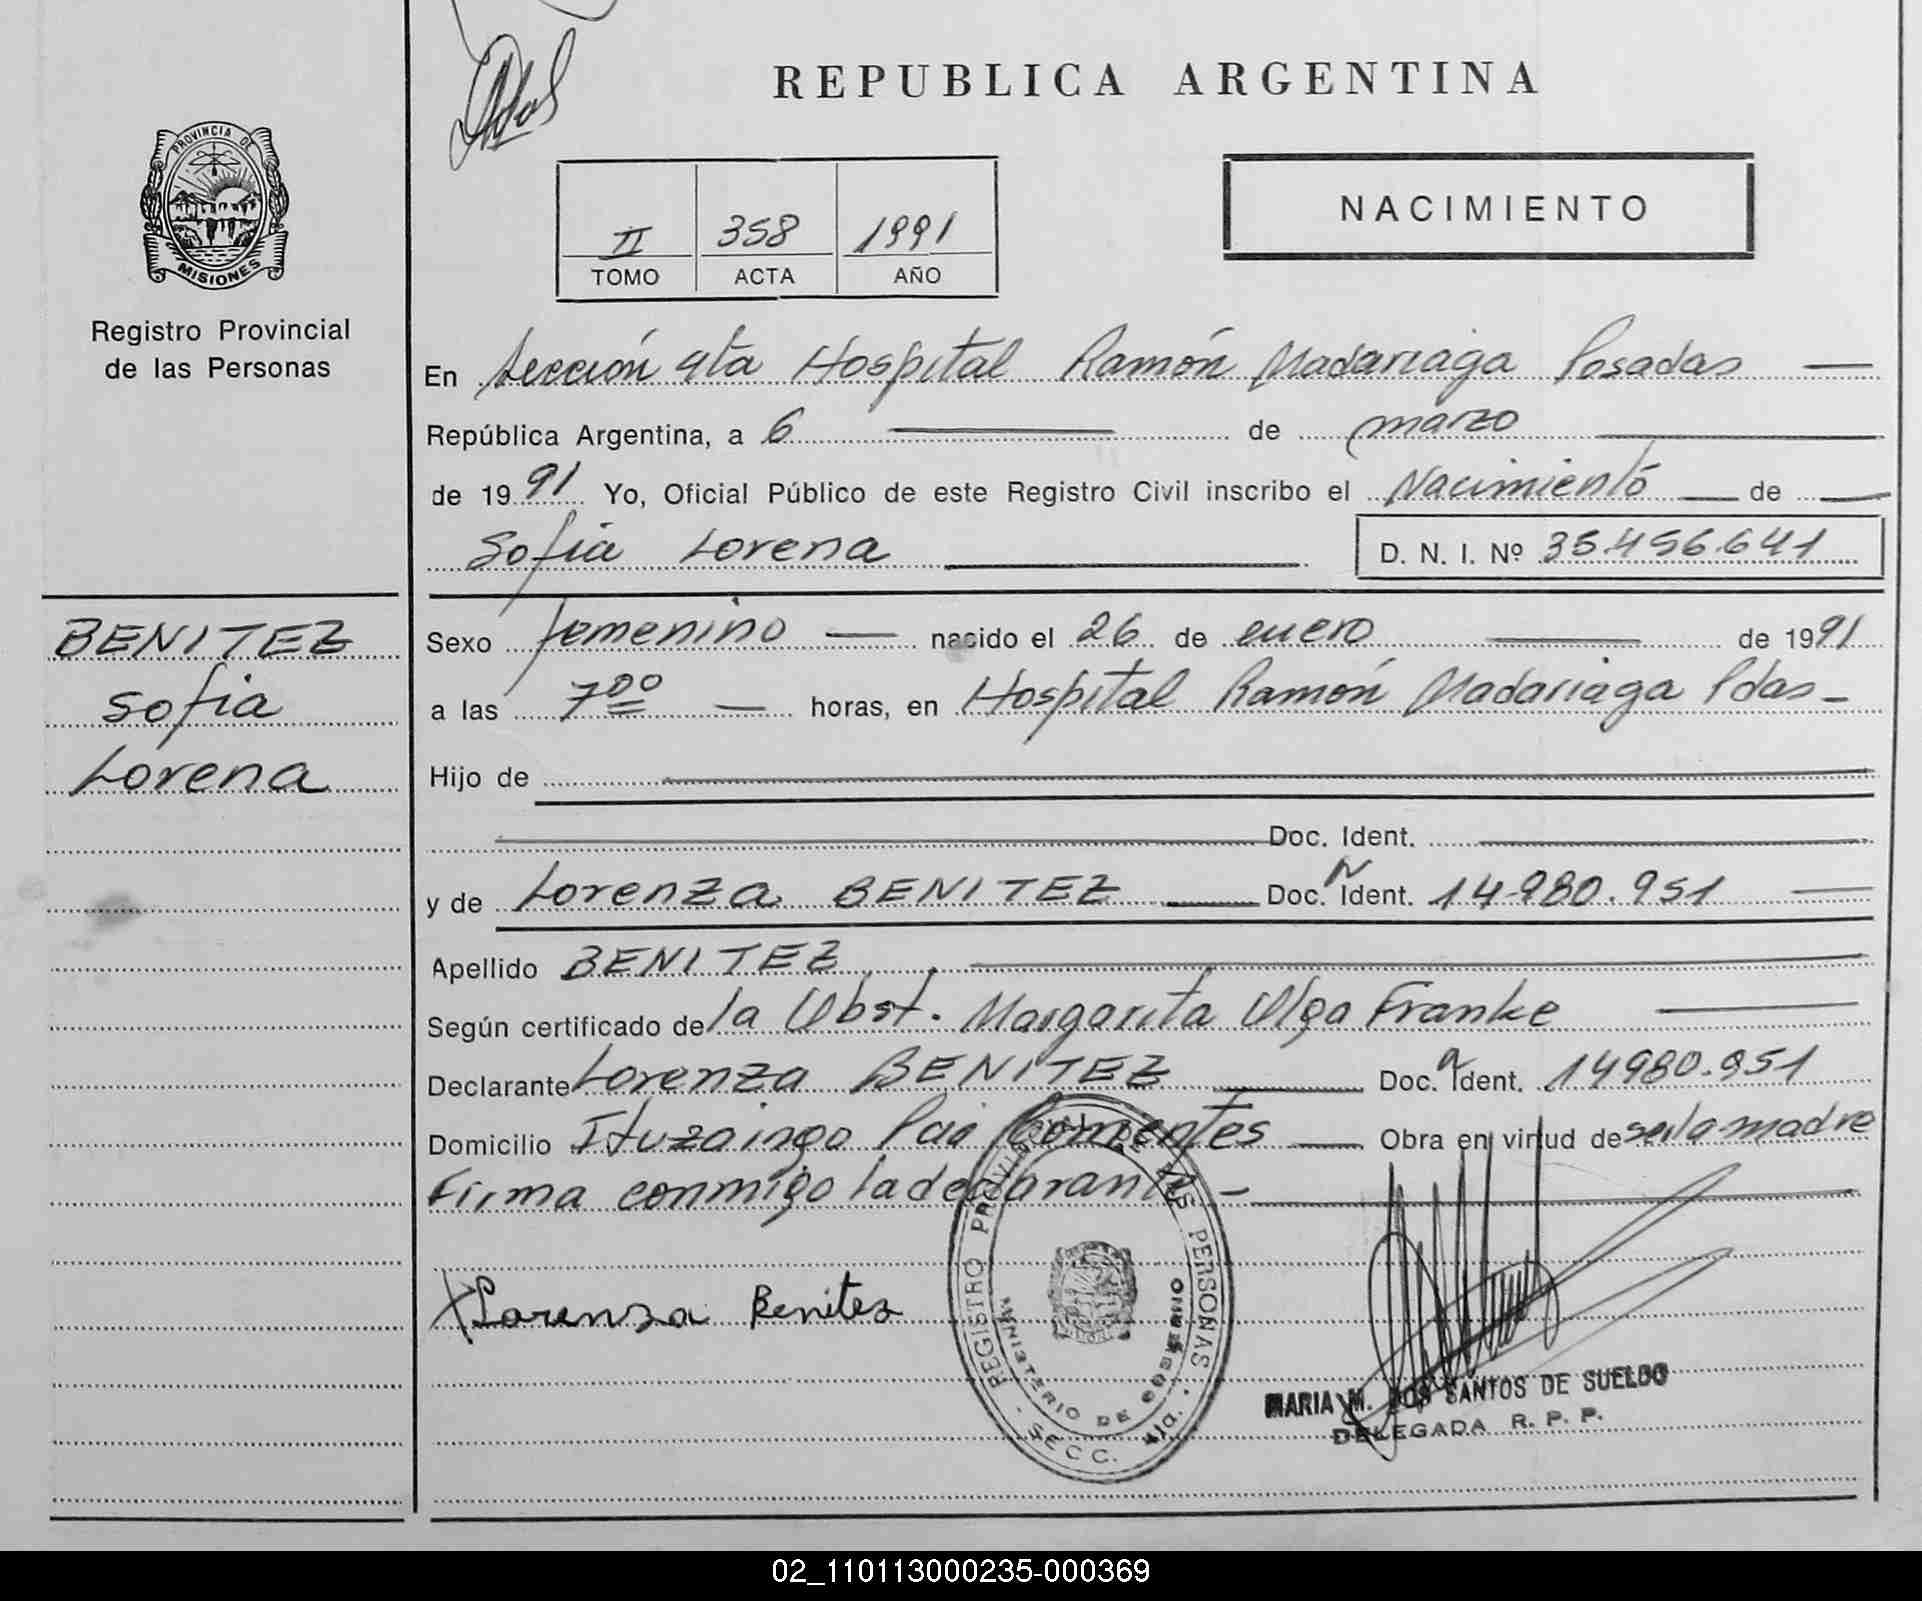 REPUBLICA ARGENTINA
PROVINCIA DE
MISIONES
Registro Provincial
de las Personas
NACIMIENTO
II 358 1991
TOMO ACTA AÑO
En Sección 4ta Hospital Ramón Madariaga Posadas —
República Argentina, a 6 — de marzo —
de 1991 Yo, Oficial Público de este Registro Civil inscribo el Nacimiento — de —
Sofia Lorena — D. N. I. Nº 35.456.641
BENITEZ
Sofia
Lorena
Sexo femenino — nacido el 26 de enero — de 1991
a las 7 00 — horas, en Hospital Ramón Madariaga Pdas —
Hijo de —
— Doc. Ident. —
y de Lorenza BENITEZ — Doc. N Ident. 14.980.951 —
Apellido BENITEZ —
Según certificado de la Obst. Margarita Olga Franke —
Declarante Lorenza BENITEZ — Doc. Ident. 14980.951
Domicilio Ituzaingo Pcia Corrientes — Obra en virtud de ser la madre
Firma conmigo la declarante —
X Lorenza Benitez
REGISTRO PROVINCIAL DE LAS PERSONAS
MINISTERIO DE GOBIERNO
SECC. 4ta.
MARIA M. DOS SANTOS DE SUELDO
DELEGADA R. P. P.
02_110113000235-000369